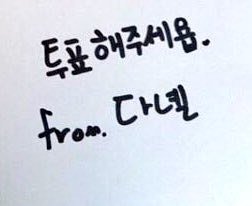 투표해주세욥.
from. 다녤